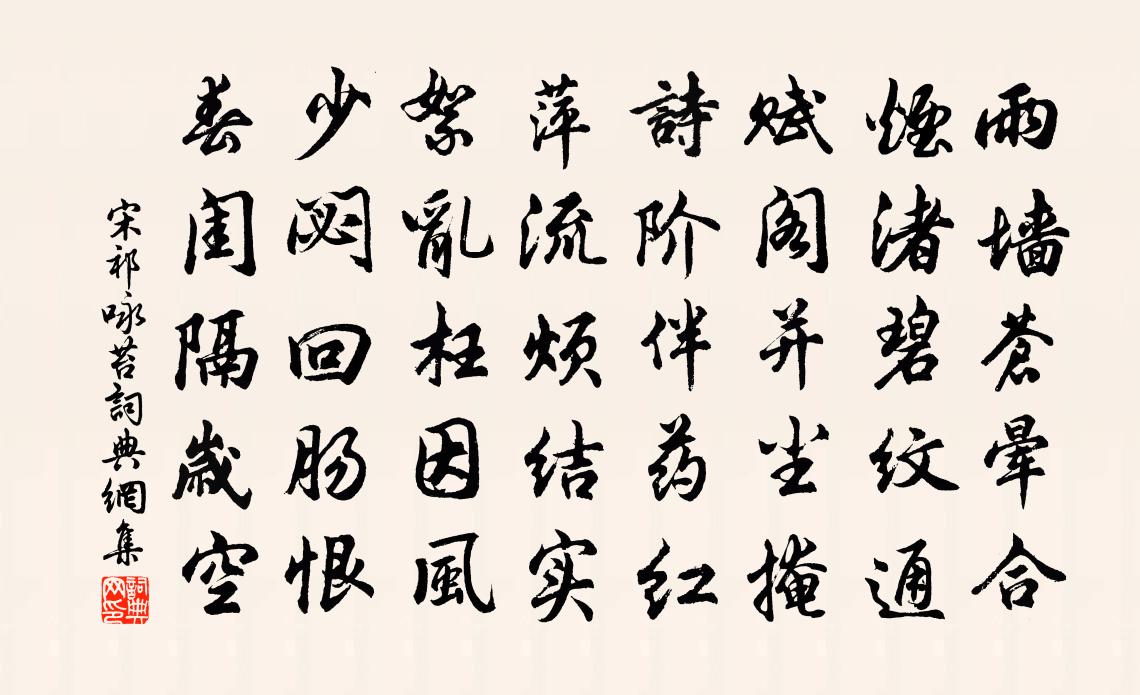 雨墙蒼暈合
煙渚碧纹通
赋阁并尘掩
詩阶伴药红
萍流烦结实
絮亂枉因風
少閟回肠恨
春闺隔歲空
宋祁咏苔詞典網集
詞典网印